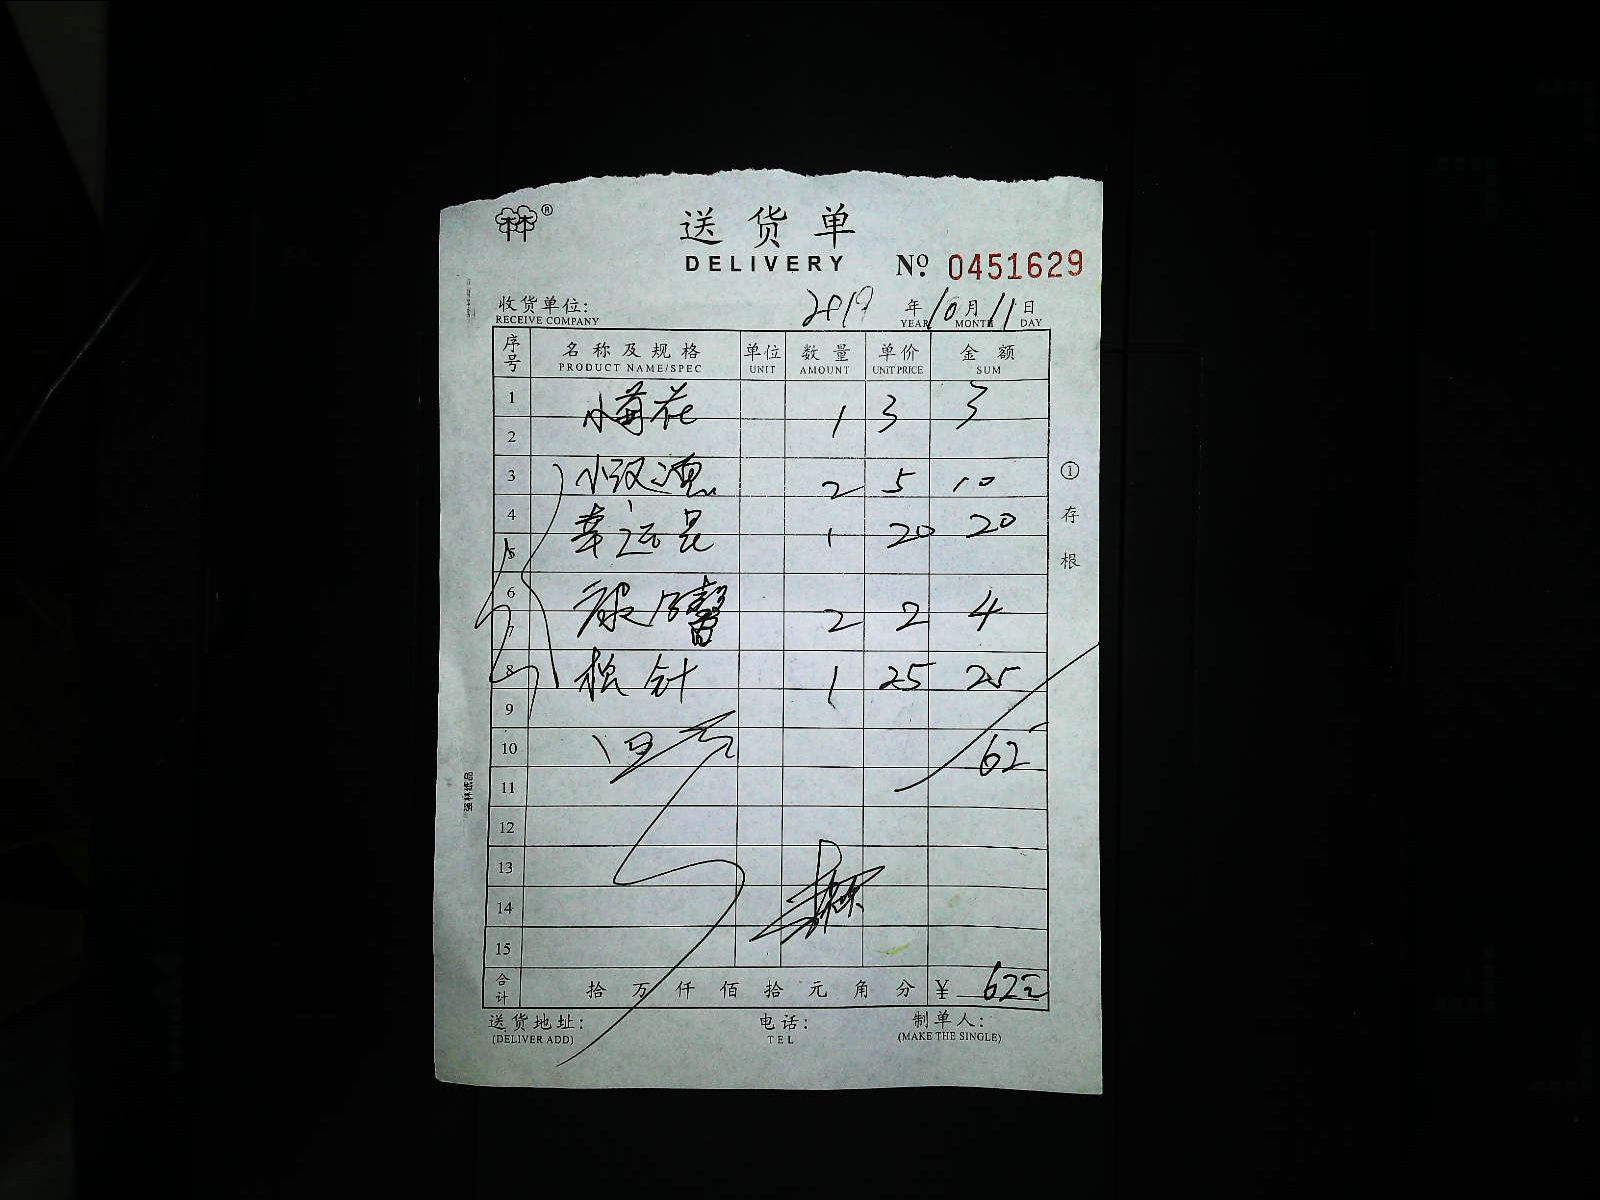 ®
送货单
DELIVERY No. 0451629
收货单位: 2019 年 10 月 11 日
RECEIVE COMPANY YEAR MONTH DAY
序号 名称及规格 单位 数量 单价 金额
PRODUCT NAME/SPEC UNIT AMOUNT UNIT PRICE SUM
1 小菊花 1 3 3
2
3 小 2 5 10
4 幸运星 1 20 20
5
6 2 2 4
7
8 松针 1 25 25
9
10 62
11
12
13
14
15
合计 拾 万 仟 佰 拾 元 角 分 ¥ 62元
送货地址: 电话: 制单人:
(DELIVER ADD) TEL (MAKE THE SINGLE)
①存根
强林纸品